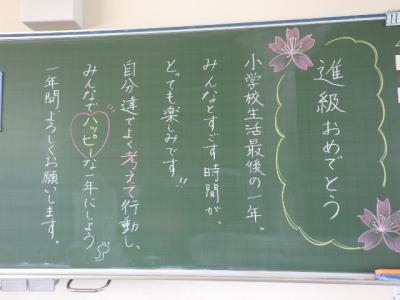 進級おめでとう
小学校生活最後の一年。
みんなとすごす時間が、
とっても楽しみです!!
自分達でよく考えて行動し、
みんなでハッピーな一年にしよう
一年間、よろしくお願いします。